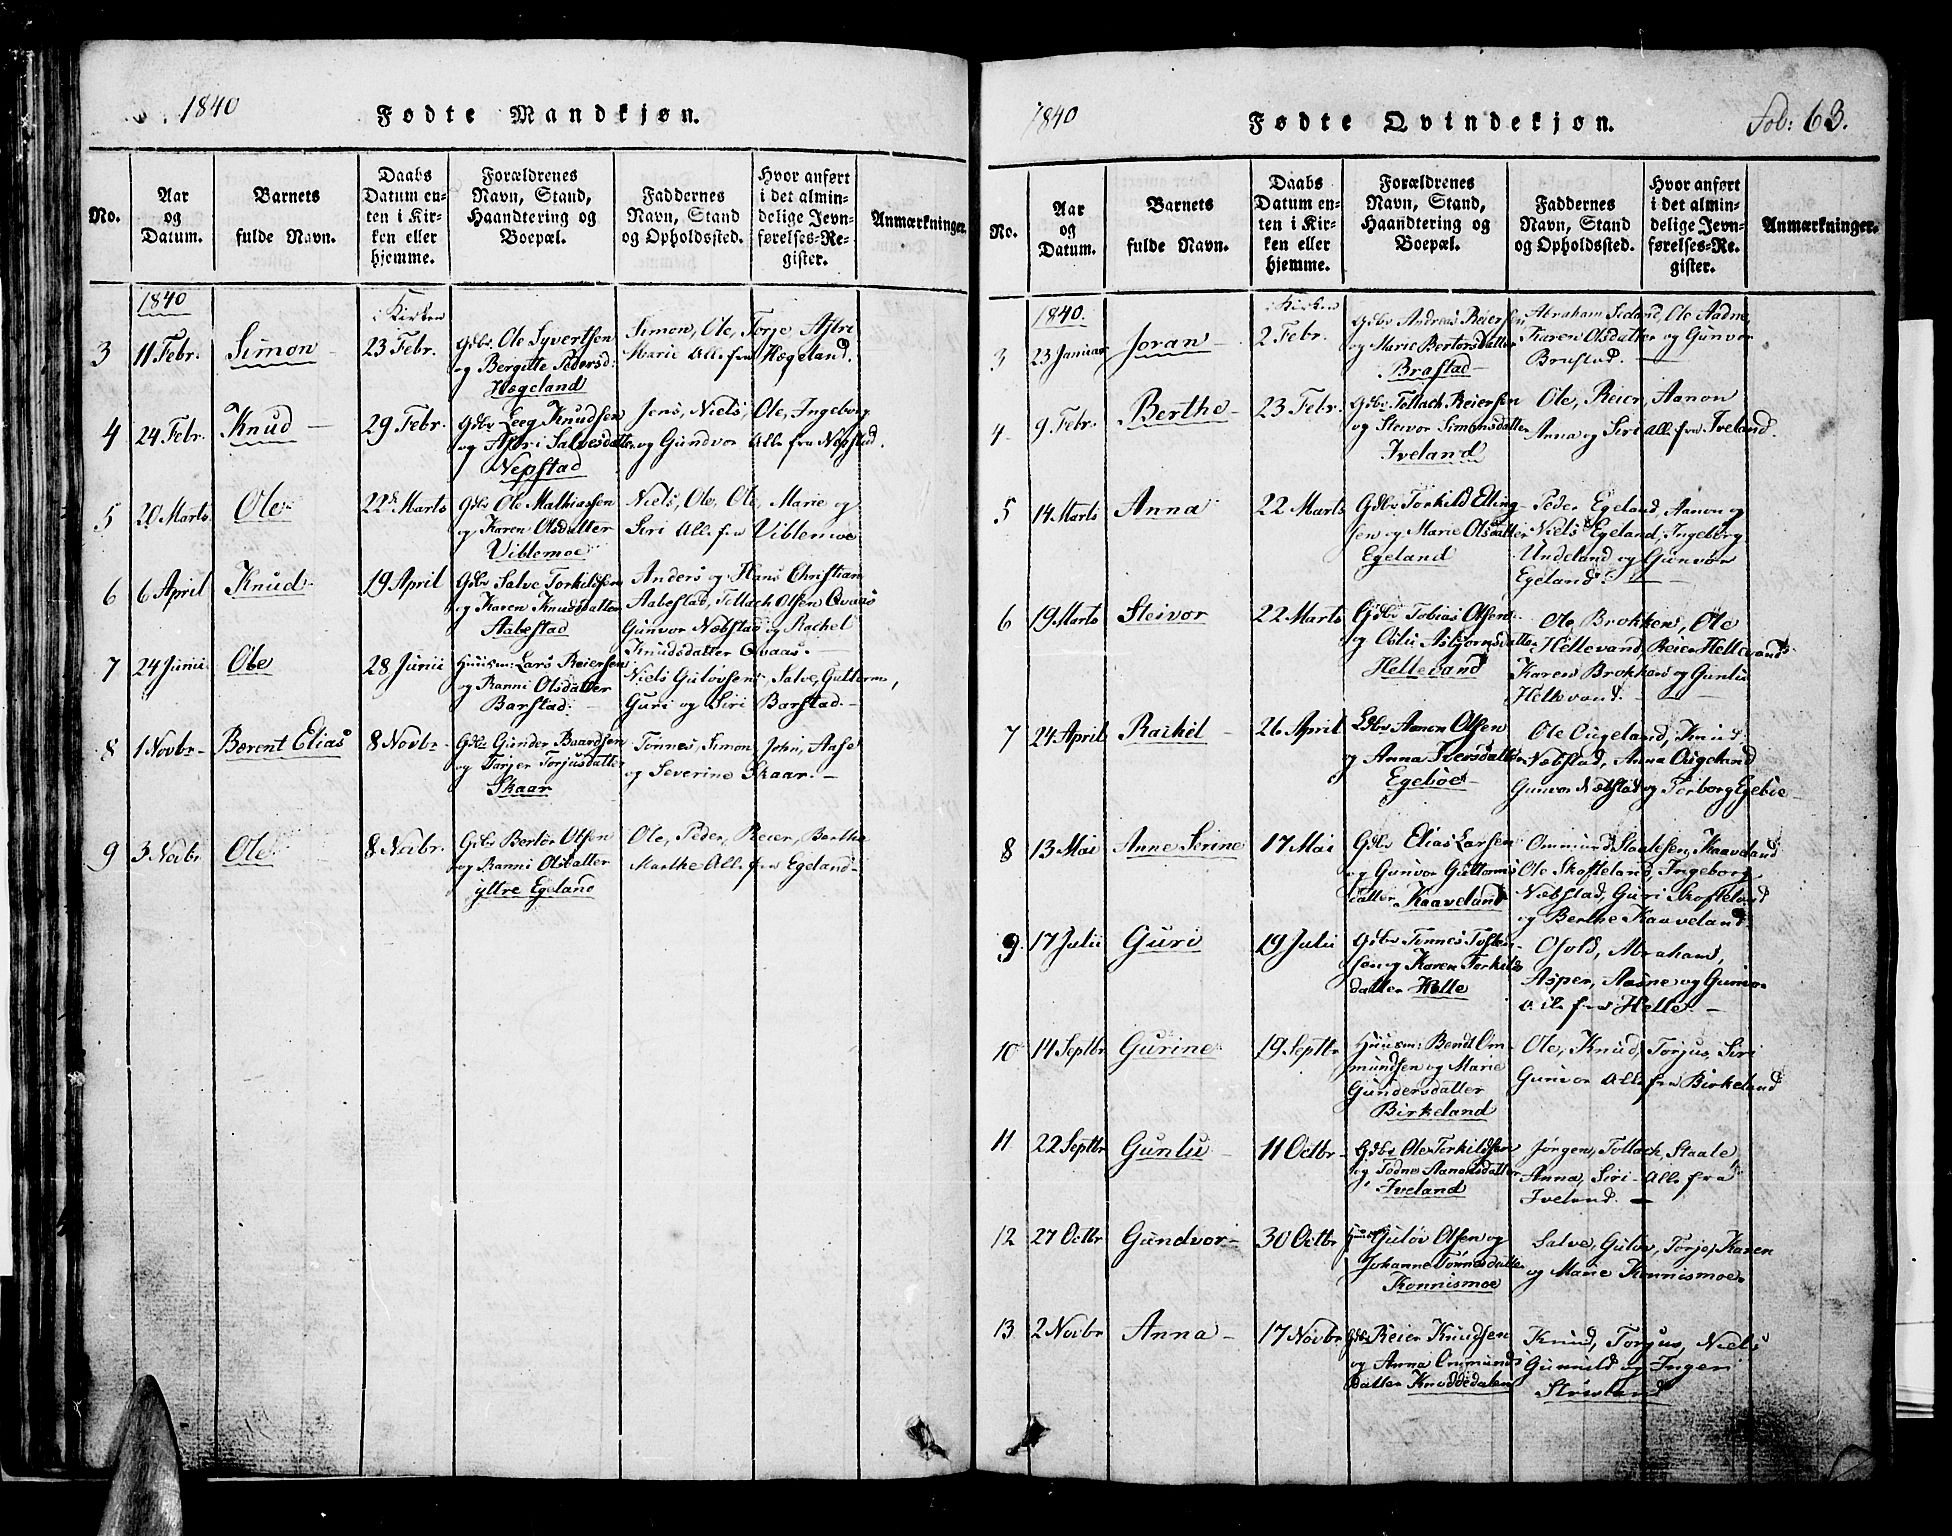 1840
Fødte Mandkjøn.
No.
Aar
og
Datum.
Barnets
fulde Navn.
Daabs
Datum en-
ten i Kir-
ken eller
hjemme.
Forældrenes
Navn, Stand,
Haandtering og
Boepæl.
Faddernes
Navn, Stand
og Opholdssted.
Hvor anført
i det almin-
delige Jevn-
førelses-Re-
gister.
Anmærkninger.
1840
i Kirken
3
11 Febr.
Simon
23 Febr.
Gdbr. Ole Syvertsen
og Bergitte Pedersd:
Hægeland
Simon, Ole, Torje, Astri
Marie Alle fra Hægeland.
4
24 Febr.
Knud
29 Febr.
Gdbr Leeg Knudsen
og Astri Salvesdatter
Nepstad
Jens, Niels, Ole, Ingeborg
og Gundvor Alle fra Nepstad.
5
20 Marts
Ole
22de Marts
Gdbr Ole Mathiassen
og Karen Olsdatter
Viblemoe
Niels, Ole, Ole, Marie og
Siri Alle fra Viblemoe
6
6 April
Knud
19 April
Gdbr Salve Torkildsen
og Karen Knudsdatter
Aabestad
Anders og Hans Christian
Aabestad, Tollach Olsen Qvaas
Gunvor Næbstad og Rachel
Knudsdatter Qvaas.
7
24 Junii
Ole
28 Junii
Huusm: Lars Reiersen
og Ranni Olsdatter
Barstad.
Niels Guløvsen, Salve, Guttorm,
Guri og Siri Barstad.
8
1 Novbr
Berent Elias
8 Novbr
Gdbr Gunder Baardsen
og Tarjer Torjusdatter
Skaar
Tønnes, Simon, John, Aase
og Severine Skaar.
9
3 Novbr
Ole
8 Novbr.
Gdbr Bertor Olsen
og Ranni Olsdatter
yttre Egeland
Ole, Peder, Reier, Berthe
Marthe Alle fra Egeland
1840
Fødte Qvindekjøn.
Fol: 63.
No.
Aar
og
Datum.
Barnets
fulde Navn.
Daabs
Datum en-
ten i Kir-
ken eller
hjemme.
Forældrenes
Navn, Stand,
Haandtering og
Boepæl.
Faddernes
Navn, Stand
og Opholdssted.
Hvor anført
i det almin-
delige Jevn-
førelses-Re-
gister.
Anmærkninger.
1840.
i Kirken
3
23 Januar
Joran
2 Febr.
Gdbr Andreas Reiersen
og Marie Bertorsdatter
Brastad
Abraham Sedand, Ole Aadne,
Karen Olsdatter og Gunvor
Brastad.
4
9 Febr.
Berthe
23 Febr.
Gdbr Tollach Reiersen
og Steivor Simonsdatter
Iveland
Ole, Reier, Aanon
Anna og Siri Alle fra Iveland.
5
14 Marts
Anna
22 Marts
Gdbr Torkild Elling-
sen og Marie Olsdatter
Egeland
Peder Egeland, Aanon og
Niels Egeland, Ingeborg
Undeland og Gunvor
Egeland.
6
19 Marts
Steivor
22 Marts
Gdbr Tobias Olsen
og Obili Asbjørnsdatter
Hellevand
Ole Brokken, Ole
Hellevand, Reier Hellevand
Karen Brokken og Gunlu
Hellevand.
7
24 April
Rachel
26 April
Gdbr Aanon Olsen
og Anna Iversdatter
Egebøe
Ole Øugeland, Knud
Næbstad, Anna Øugeland
Gunvor Næbstad og Torborg Egebøe
8
13 Mai
Anne Serine
17 Mai
Gdbr Elias Larsen
og Gunvor Guttorms
datter Kaaveland
Ommund Staalesen, Kaaveland
Ole Skofteland, Ingeborg
Næbstad, Guri Skofteland
og Berthe Kaaveland
9.
17 Julii
Guri
19 Julii
Gdbr Tønnes Tosten-
sen og Karen Torkilds
datter Helle
Osold, Abraham,
Asper, Aasne og Gunvor
Alle fra Helle.
10
14 Septbr
Gurine
19 Septbr
Huusm: Bendt Om-
mundsen og Marie
Gundersdatter
Birkeland
Ole, Knud, Torjus, Siri
Gunvor Alle fra Birkeland
11
22 Septbr
Gunlu
11 Octbr
Gdbr Ole Torkildsen
og Todne Aanensdatter
Iveland
Jørgen, Tollach, Staale
Anna, Siri Alle fra
Iveland.
12
27 Octbr
Gundvor
30 Octbr
Huusm Guløv Olsen og
Johanne Tønnesdatter
Konnismoe
Salve, Guløv, Torje, Karen
og Marie Konnismoe.
13
2 Novbr
Anna
17 Novbr
Gdbr Reier Knudsen
og Anna Ommunds
datter Knuddedalen
Knud, Torjus, Niels
Gunnild og Ingeri